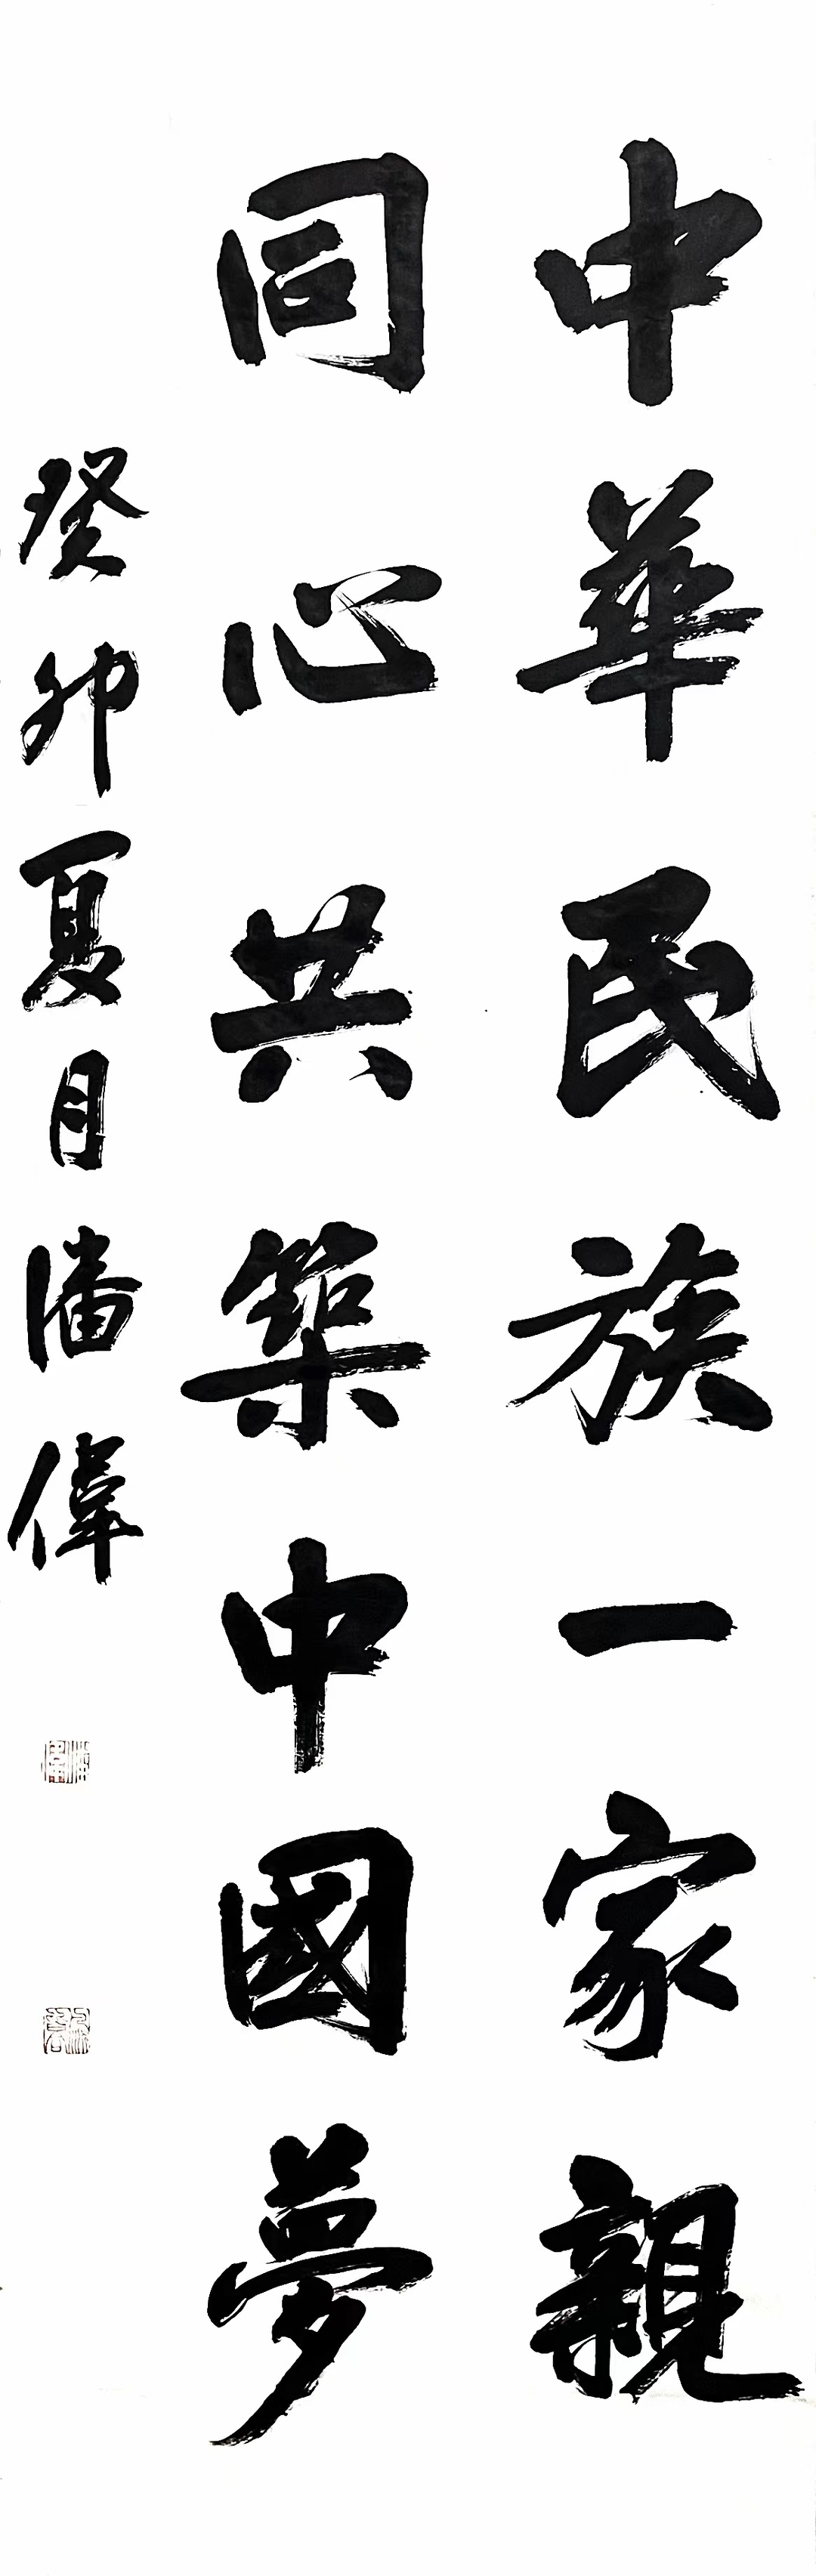 中華民族一家親
同心共築中國夢
癸卯夏月潘偉